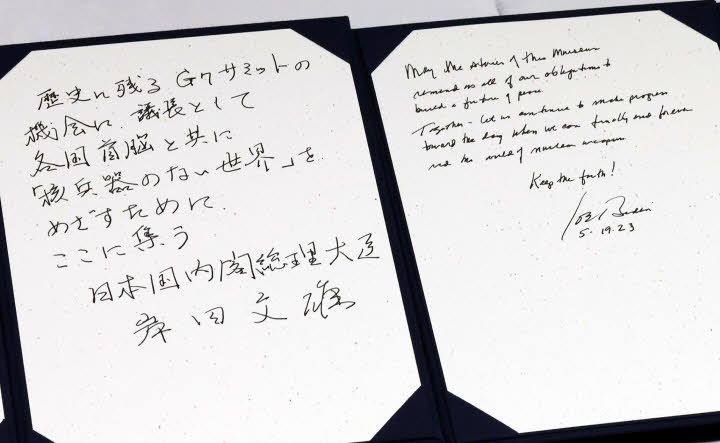 歴史に残るG7サミットの
機会に議長として
各国首脳と共に
「核兵器のない世界」を
めざすために
ここに集う
日本国内閣総理大臣
岸田文雄
May the stories of this Museum
remind us all of our obligations to
build a future of peace.
Together - let us continue to make progress
toward the day when we can finally and forever
rid the world of nuclear weapons.
Keep the faith!
Joe Biden
5.19.23